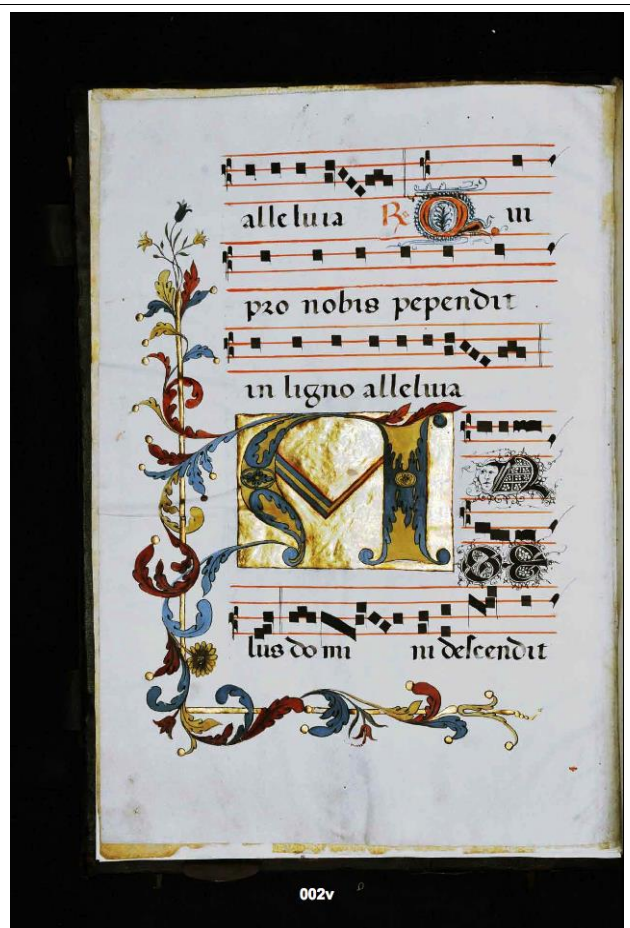 alleluia ℟. Qui
pro nobis pependit
in ligno alleluia
AN
GE
lus do mi ni deſcendit
002v